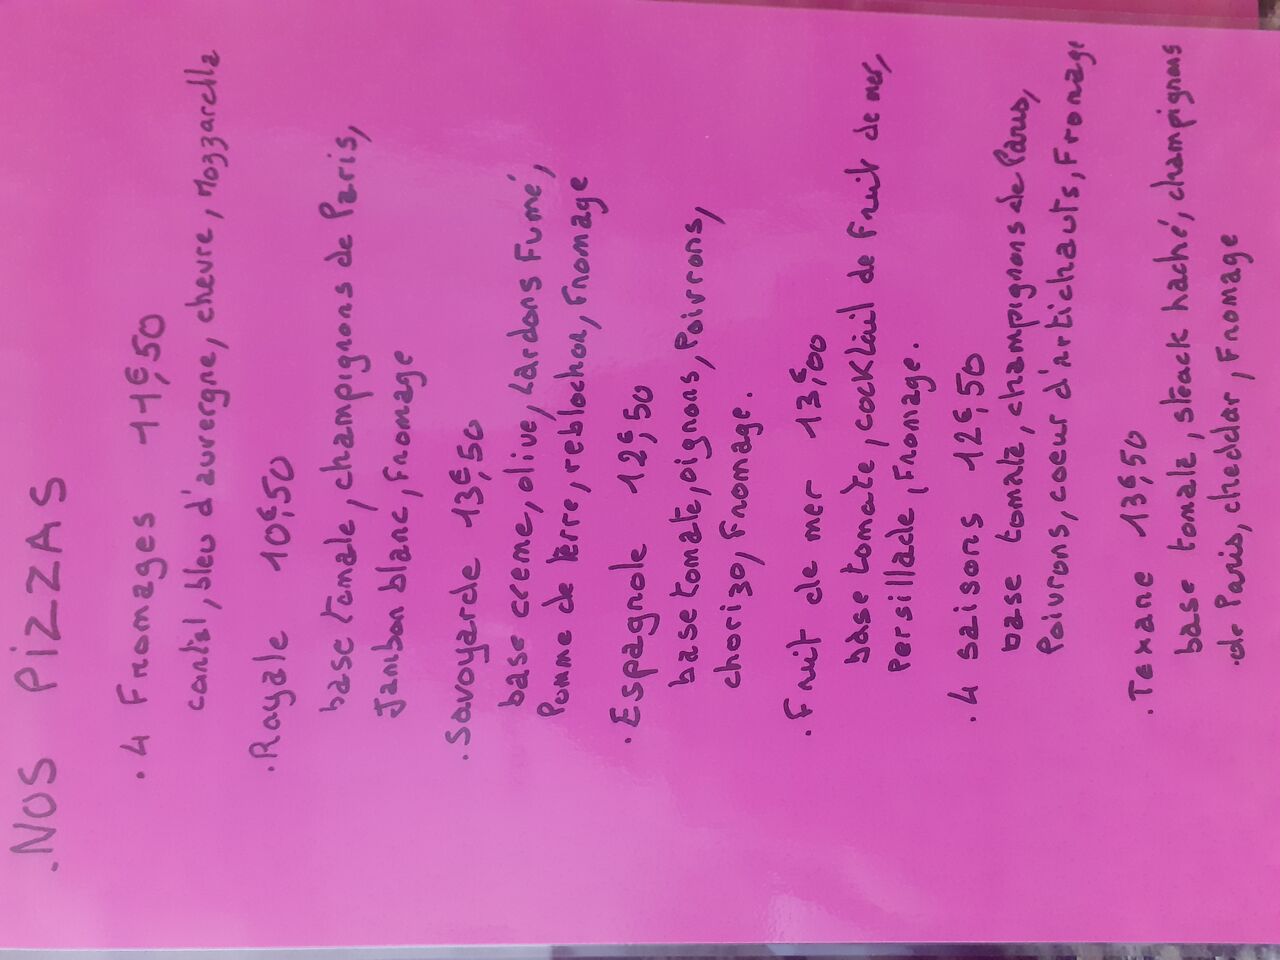 .NOS PiZZAS
. 4 Fromages 11€,50
cantal, bleu d'auvergne, chevre, Mozzarella
. Royale 10€,50
base tomate, champignons de Paris,
Jambon blanc, Fromage
. Savoyarde 13€,50
base creme, olive, Lardons Fumé,
Pomme de terre, reblochon, Fromage
. Espagnole 12€,50
base tomate, oignons, Poivrons,
chorizo, Fromage.
. Fruit de mer 13,€00
base tomate, cocktail de Fruit de mer,
Persillade, Fromage.
. 4 saisons 12€,50
base tomate, champignons de Paris,
Poivrons, coeur d'artichauts, Fromage
. Texane 13€,50
base tomate, steack haché, champignons
de Paris, cheddar, Fromage